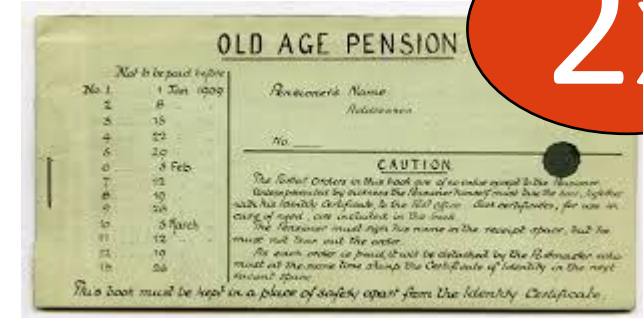 2
OLD AGE PENSION
Not to be paid before
No. 1 1 Jan 1909
2 8
3 15
4 22
5 29
6 5 Feb
7 12
8 19
9 26
10 5 March
11 12
12 19
13 26
Pensioner's Name
Addresses
No.
CAUTION
The Postal Orders in this book are of no value except to the Pensioner.
Unless prevented by sickness the Pensioner himself must take the book, together
with his Identity Certificate, to the Post office. Sick certificates, for use in
case of need, are included in the book.
The Pensioner must sign his name in the receipt space, but he
must not tear out the order.
As each order is paid, it will be detached by the Postmaster who
must at the same time stamp the Certificate of Identity in the next
vacant space.
This book must be kept in a place of safety apart from the Identity Certificate.